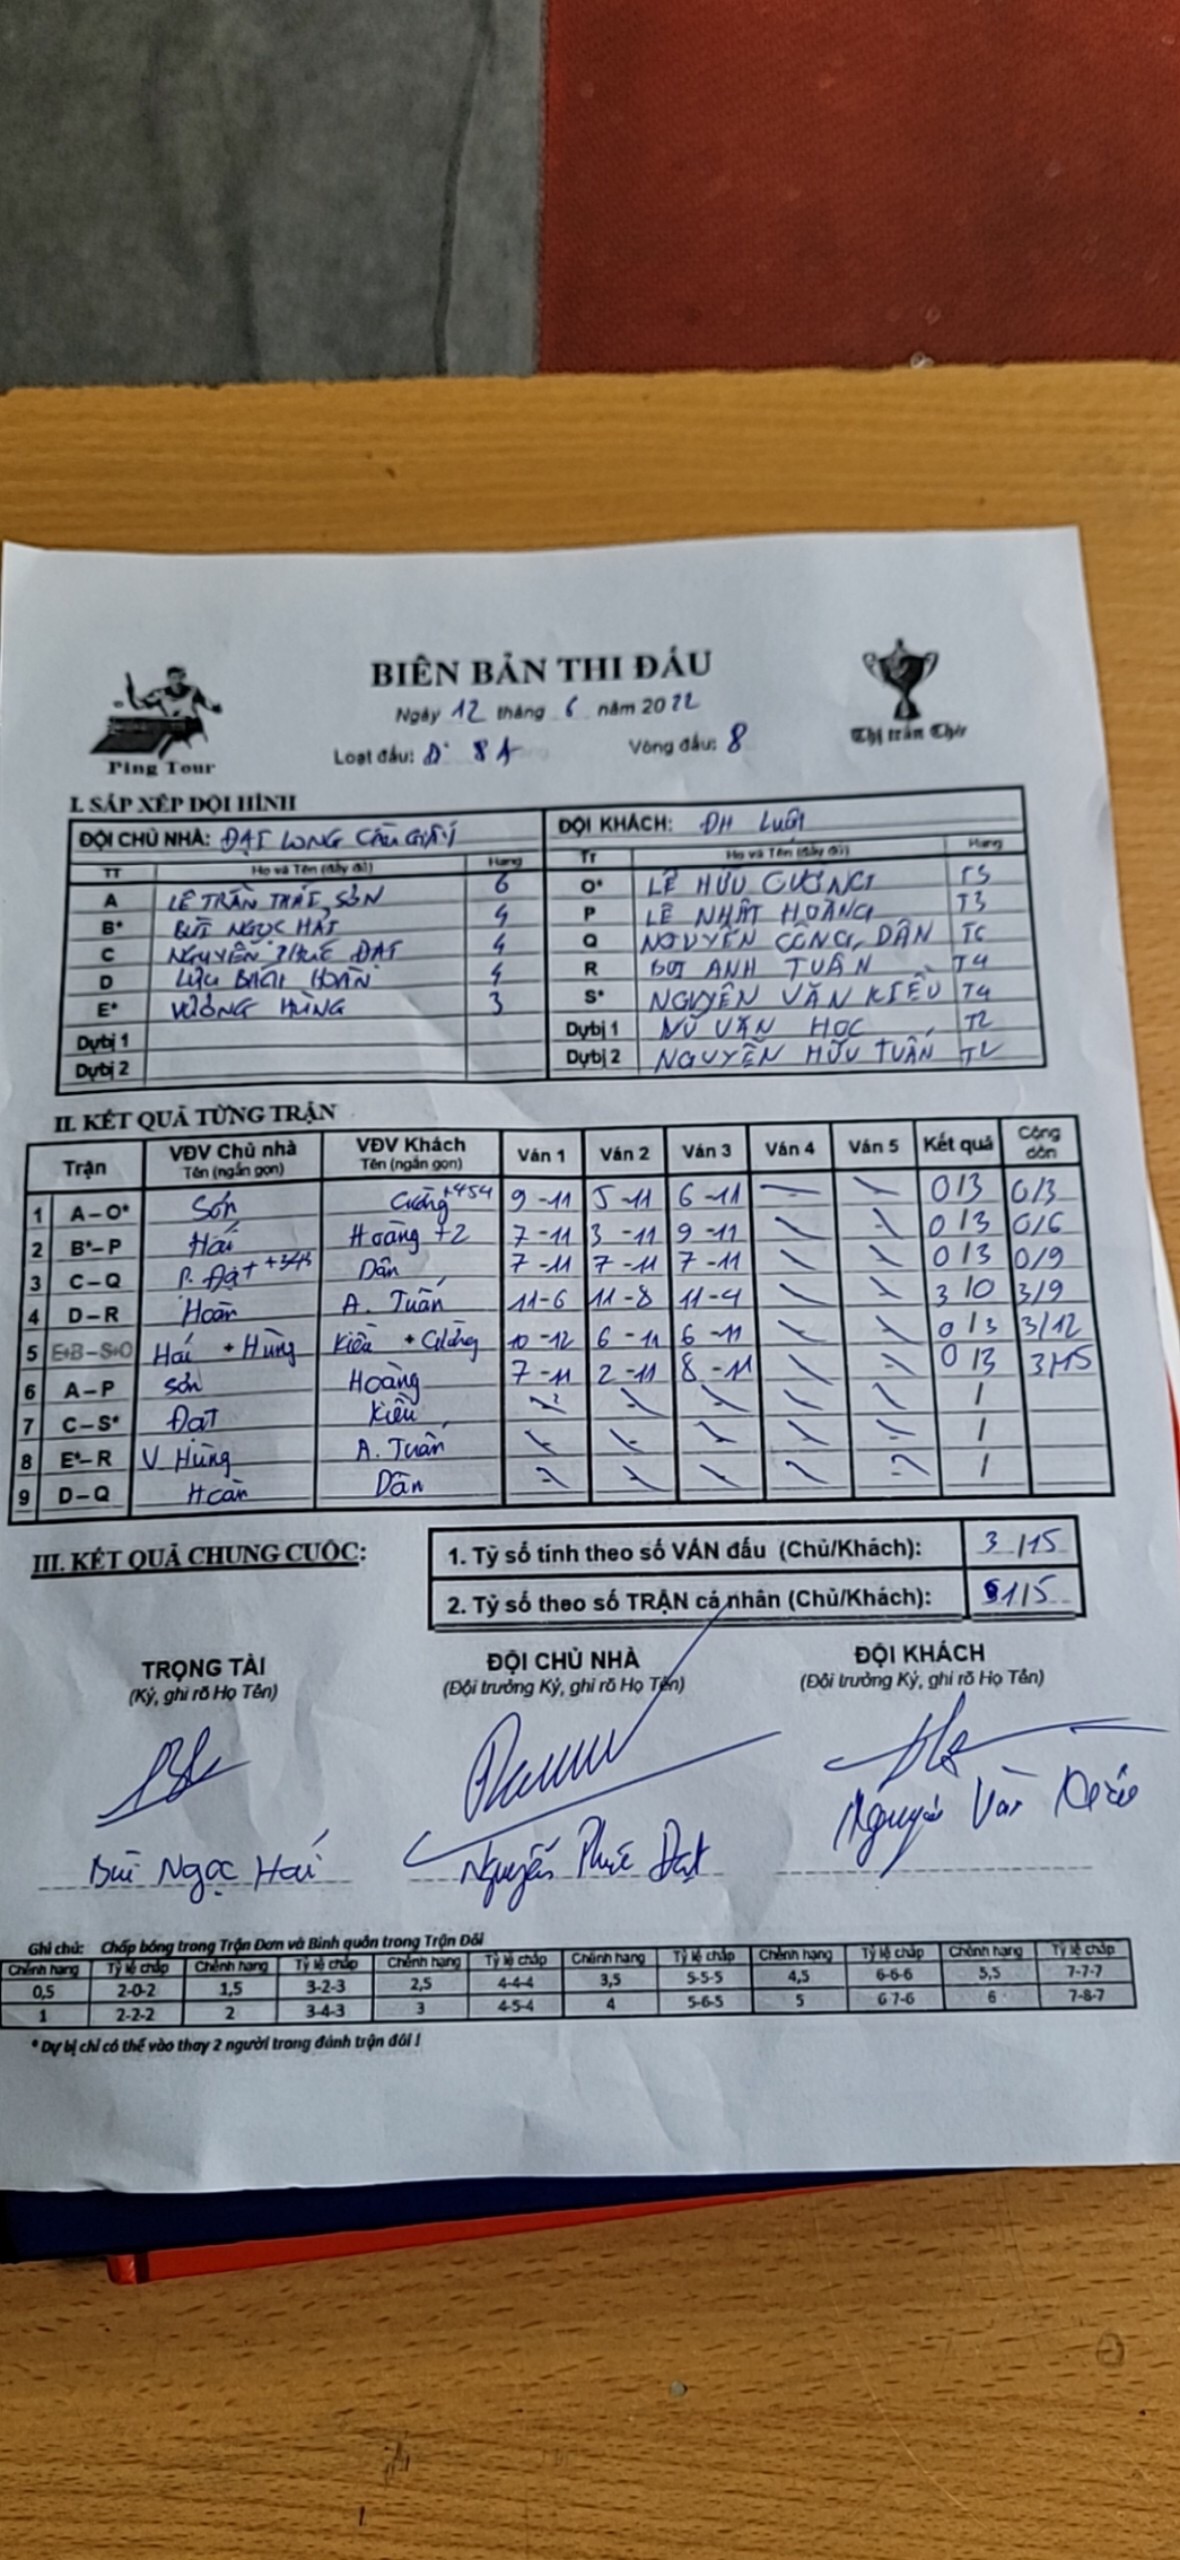 BIÊN BẢN THI ĐẤU
Ngày 12 tháng 6 năm 2022
Loạt đấu: D 8A Vòng đấu: 8
Ping Tour
Thị trấn Chờ
I. SẮP XẾP ĐỘI HÌNH
ĐỘI CHỦ NHÀ: ĐẠI LONG CẦU GIẤY ĐỘI KHÁCH: ĐH Luật
TT Họ và Tên (đầy đủ) Hạng Tr Họ và Tên (đầy đủ) Hạng
A LÊ TRẦN THÁI SƠN 6 O* LÊ HỮU CƯỜNG
B* BÙI NGỌC HẢI 4 P LÊ NHẬT HOÀNG T3
C NGUYỄN PHÚC ĐẠT 4 Q NGUYỄN CÔNG DÂN T6
D LƯU BÁCH HOÀN 4 R BÙI ANH TUẤN T4
E* VƯƠNG HÙNG 3 S* NGUYỄN VĂN KIỀU T4
Dự bị 1 Dự bị 1 VŨ VĂN HỌC T2
Dự bị 2 Dự bị 2 NGUYỄN HỮU TUẤN T2
II. KẾT QUẢ TỪNG TRẬN
Trận VĐV Chủ nhà Tên (ngắn gọn) VĐV Khách Tên (ngắn gọn) Ván 1 Ván 2 Ván 3 Ván 4 Ván 5 Kết quả Cộng dồn
1 A – O* Sơn Cường +454 9 - 11 5 - 11 6 - 11 0/3 0/3
2 B* – P Hải Hoàng +2 7 - 11 3 - 11 9 - 11 0/3 0/6
3 C – Q P. Đạt +343 Dân 7 - 11 7 - 11 7 - 11 0/3 0/9
4 D – R Hoàn A. Tuấn 11 - 6 11 - 8 11 - 4 3/0 3/9
5 E+B – S+O Hải + Hùng Kiều + Cường 10 - 12 6 - 11 6 - 11 0/3 3/12
6 A – P Sơn Hoàng 7 - 11 2 - 11 8 - 11 0/3 3/15
7 C – S* Đạt Kiều /
8 E* – R V Hùng A. Tuấn /
9 D – Q Hoàn Dân /
III. KẾT QUẢ CHUNG CUỘC:
1. Tỷ số tính theo số VÁN đấu (Chủ/Khách): 3/15
2. Tỷ số theo số TRẬN cá nhân (Chủ/Khách): 1/5
TRỌNG TÀI ĐỘI CHỦ NHÀ ĐỘI KHÁCH
(Ký, ghi rõ Họ Tên) (Đội trưởng Ký, ghi rõ Họ Tên) (Đội trưởng Ký, ghi rõ Họ Tên)
Bùi Ngọc Hải Nguyễn Phúc Đạt Nguyễn Văn Kiều
Ghi chú: Chấp bóng trong Trận Đơn và Bình quân trong Trận Đôi
Chênh hạng Tỷ lệ chấp Chênh hạng Tỷ lệ chấp Chênh hạng Tỷ lệ chấp Chênh hạng Tỷ lệ chấp Chênh hạng Tỷ lệ chấp Chênh hạng Tỷ lệ chấp
0,5 2-0-2 1,5 3-2-3 2,5 4-4-4 3,5 5-5-5 4,5 6-6-6 5,5 7-7-7
1 2-2-2 2 3-4-3 3 4-5-4 4 5-6-5 5 6 7-6 6 7-8-7
* Dự bị chỉ có thể vào thay 2 người trong đánh trận đôi !